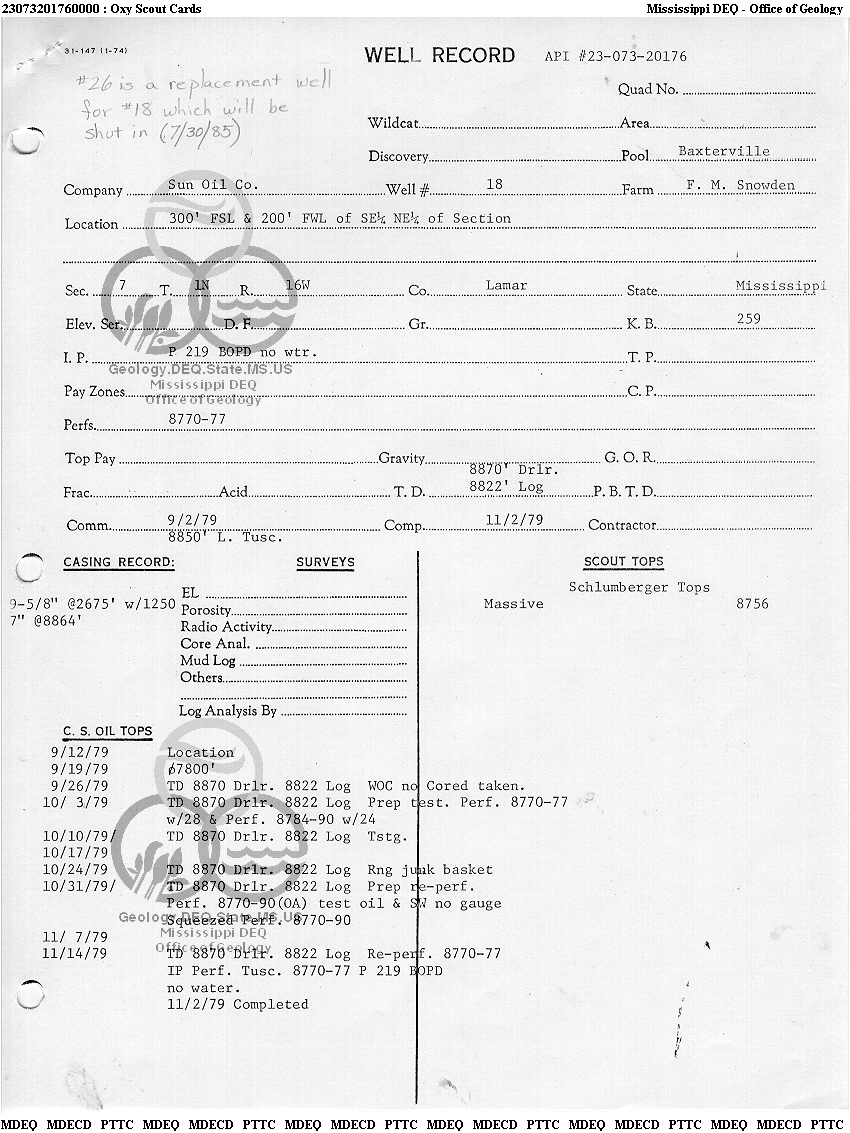 23073201760000 : Oxy Scout Cards Mississippi DEQ - Office of Geology
31-147 (1-74)
WELL RECORD API #23-073-20176
#26 is a replacement well
for #18 which will be
shut in (7/30/85)
Quad No.
Wildcat Area
Discovery Pool Baxterville
Company Sun Oil Co. Well # 18 Farm F. M. Snowden
Location 300' FSL & 200' FWL of SE¼ NE¼ of Section
Sec. 7 T. 1N R. 16W Co. Lamar State Mississippi
Elev. Ser. D. F. Gr. K. B. 259
I. P. P 219 BOPD no wtr. T. P.
Geology.DEQ.State.MS.US
Mississippi DEQ
Office of Geology
Pay Zones C. P.
Perfs. 8770-77
Top Pay Gravity G. O. R.
8870' Drlr.
Frac. Acid T. D. 8822' Log P. B. T. D.
Comm. 9/2/79 Comp. 11/2/79 Contractor
8850' L. Tusc.
CASING RECORD: SURVEYS SCOUT TOPS
Schlumberger Tops
Massive 8756
9-5/8" @2675' w/1250
7" @8864'
EL
Porosity
Radio Activity
Core Anal.
Mud Log
Others
Log Analysis By
C. S. OIL TOPS
9/12/79 Location
9/19/79 67800'
9/26/79 TD 8870 Drlr. 8822 Log WOC no Cored taken.
10/ 3/79 TD 8870 Drlr. 8822 Log Prep test. Perf. 8770-77
w/28 & Perf. 8784-90 w/24
10/10/79/ TD 8870 Drlr. 8822 Log Tstg.
10/17/79
10/24/79 TD 8870 Drlr. 8822 Log Rng junk basket
10/31/79/ TD 8870 Drlr. 8822 Log Prep re-perf.
Perf. 8770-90(OA) test oil & SW no gauge
Geology.DEQ.State.MS.US
Squeezed Perf. 8770-90
Mississippi DEQ
Office of Geology
11/ 7/79
11/14/79 TD 8870 Drlr. 8822 Log Re-perf. 8770-77
IP Perf. Tusc. 8770-77 P 219 BOPD
no water.
11/2/79 Completed
MDEQ MDECD PTTC MDEQ MDECD PTTC MDEQ MDECD PTTC MDEQ MDECD PTTC MDEQ MDECD PTTC MDEQ MDECD PTTC